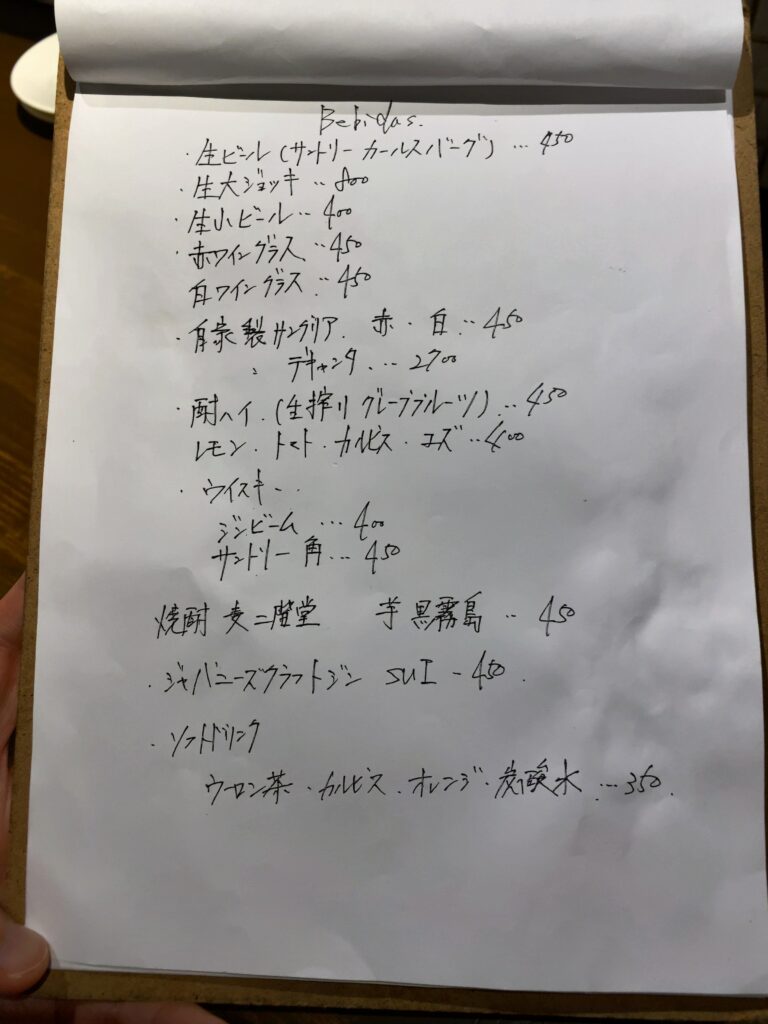 Bebidas.
・生ビール (サントリー カールスバーグ) … 450
・生大ジョッキ ‥ 800
・生小ビール ‥ 400
・赤ワイングラス ‥ 450
白ワイングラス ‥ 450
・自家製サングリア. 赤・白 ‥ 450
〃 デキャンタ. … 2700
・酎ハイ. (生搾りグレープフルーツ) ‥ 450
レモン・トマト・カルピス・ユズ ‥ 400
・ウイスキー
ジンビーム … 400
サントリー角 … 450
焼酎 麦二階堂 芋黒霧島 ‥ 450
・ジャパニーズクラフトジン SUI - 450.
・ソフトドリンク
ウーロン茶・カルピス・オレンジ・炭酸水 … 350.